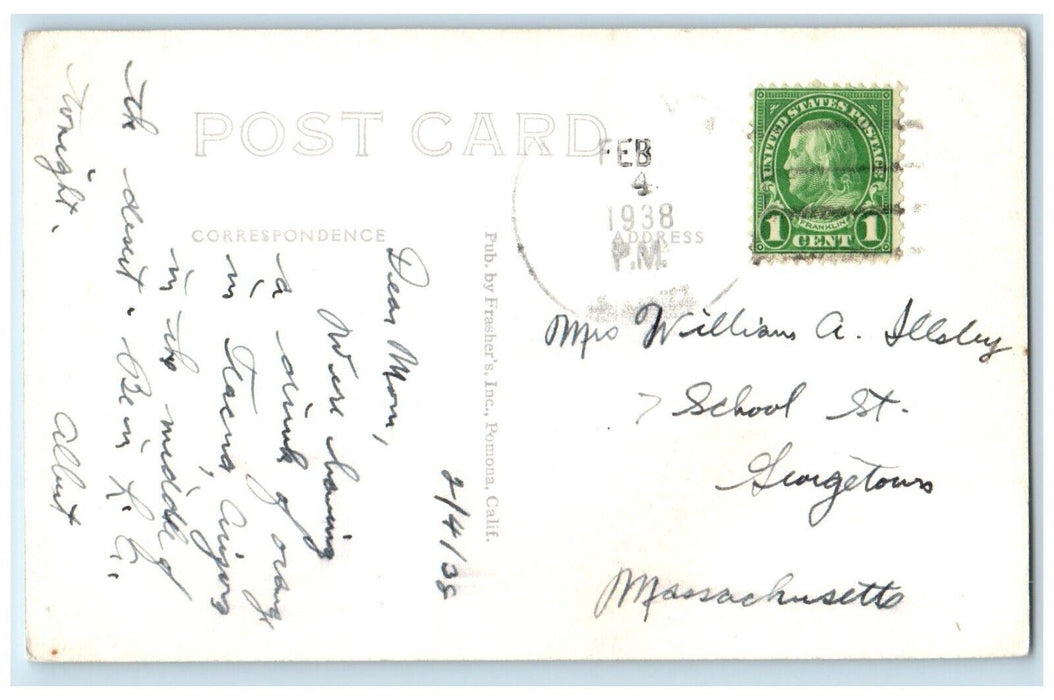 POST CARD
CORRESPONDENCE
ADDRESS
FEB
4
1938
P.M.
UNITED STATES POSTAGE
FRANKLIN
1 CENT 1
Pub. by Frasher's, Inc., Pomona, Calif.
2/4/38
Dear Mom,
We're having
a drink of orange
in Arizona
in the middle of
the desert. Be in L.A.
tonight.
Albert
Mrs William A. Illsley
7 School St.
Georgetown
Massachusetts